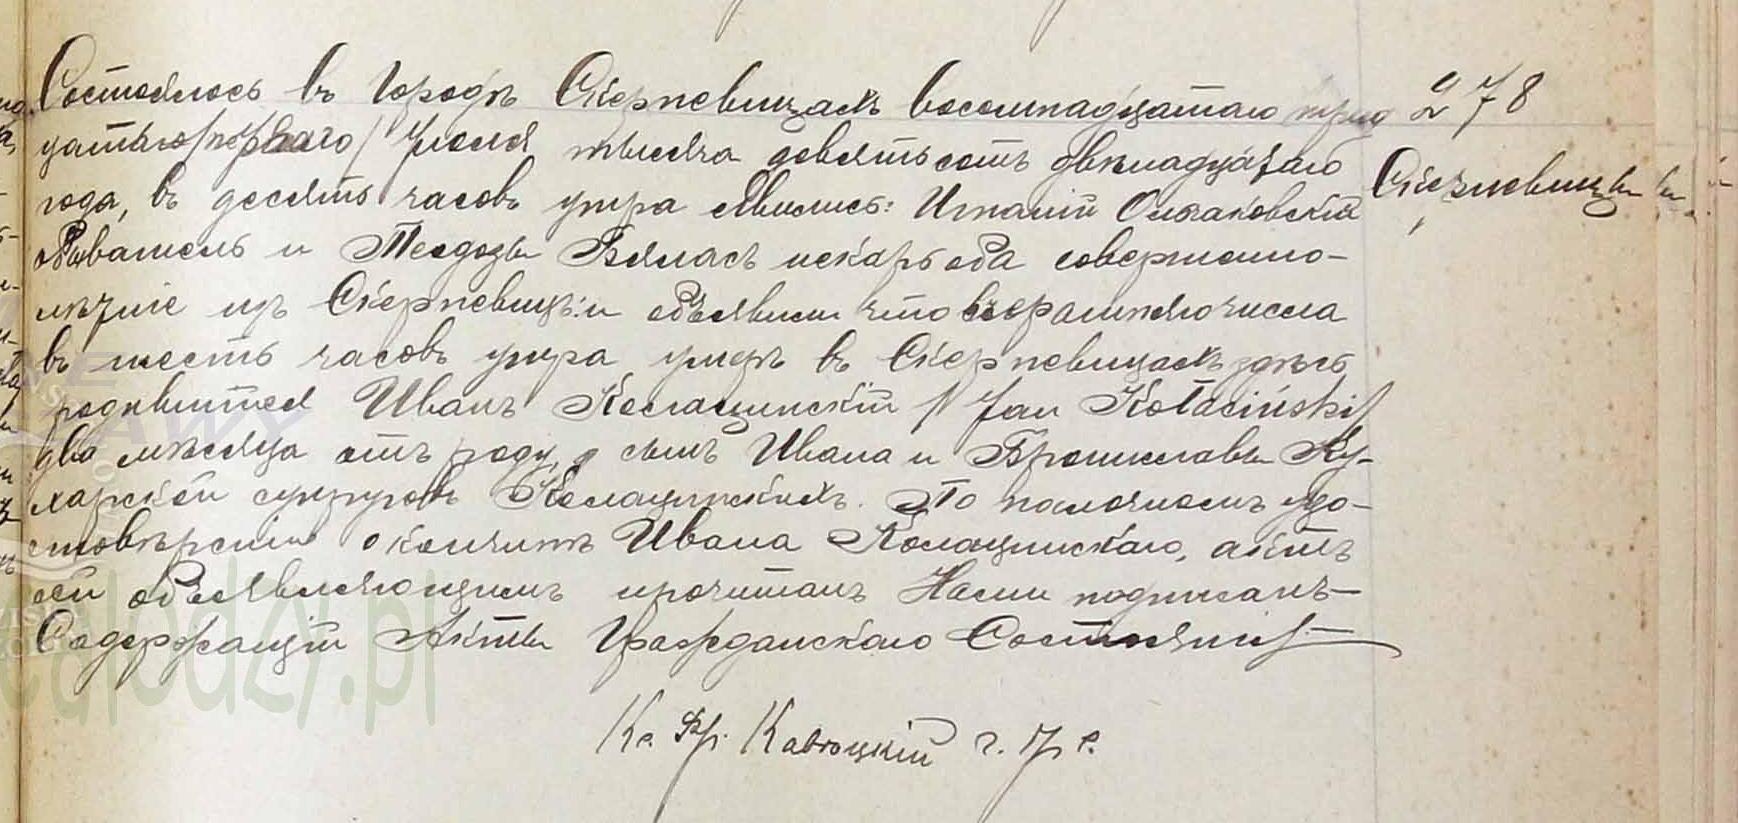 278
Скерневицы
Состоялось въ городѣ Скерневицахъ восемнадцатаго /трид
цать перваго/ Іюля тысяча девятьсотъ двѣнадцатаго
года, въ десять часовъ утра явились: Игнатій Ольшаковскій
обыватель и Теодозы Вялясъ пекарь оба совершенно-
лѣтніе изъ Скерневицъ и объявили что вчерашняго числа
въ шесть часовъ утра умеръ въ Скерневицахъ здѣсь
родившійся Иванъ Колацинскій /Jan Kołaciński/
два мѣсяца отъ роду, сынъ Ивана и Брониславы Ку-
харской супруговъ Колацинскихъ. По наличномъ удо-
стовѣреніи о кончинѣ Ивана Колацинскаго, актъ
сей объявляющимъ прочитанъ Нами подписанъ-
Содержащій Акты Гражданскаго Состоянія
Кс. Фр.